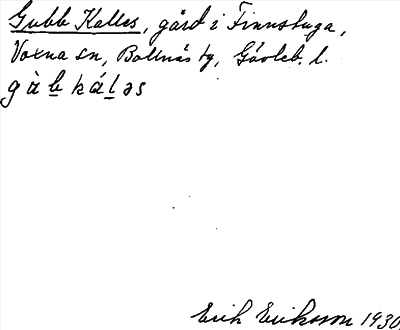 Gubb Kalles, gård i Finnstuga,
Voxna sn, Bollnäs tg, Gävleb. l.
g à b k á l ə s
Erik Eriksson 1930.